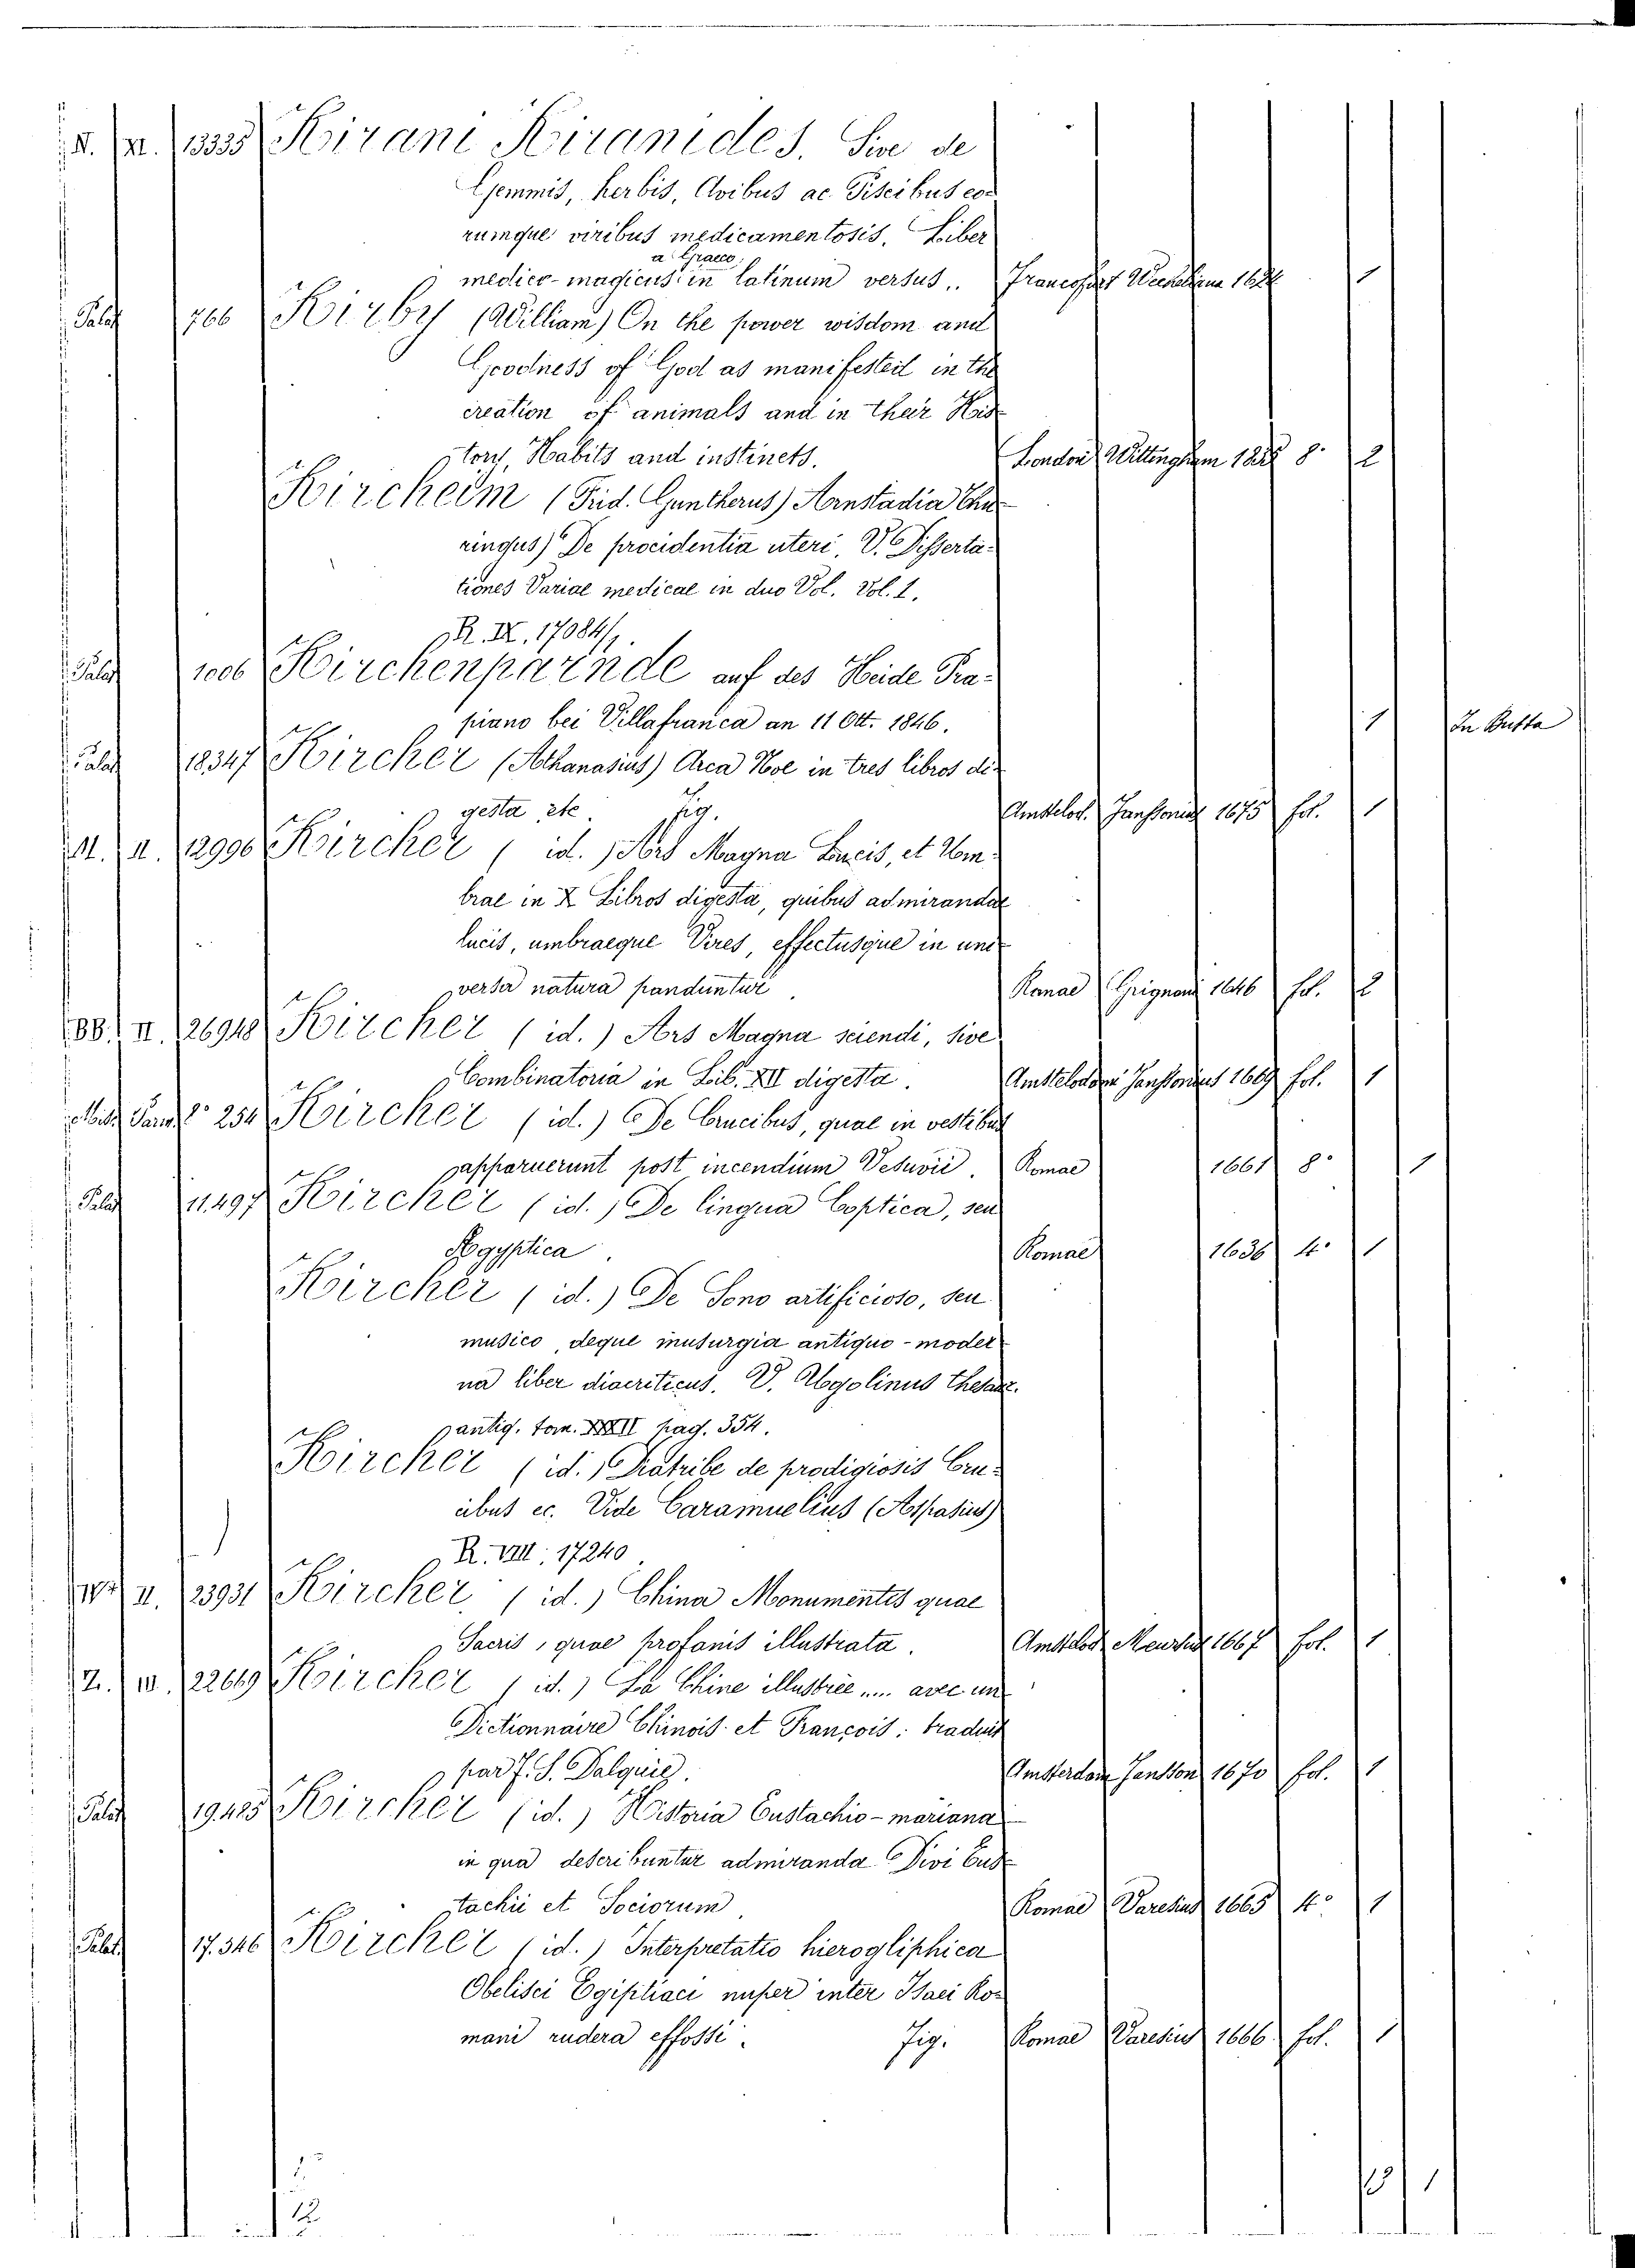 II. XI. 13335 Kirani Kiranides. Sive de
Gemmis, herbis, Avibus ac Piscibus eo-
rumque viribus medicamentosis, Liber
a Graeco
medico-magicus in latinum versus.. Francofurt 1
Palat 766 Kirby (William) On the power wisdom and
Goodness of God as manifesteil in the
creation of animals and in their His
tory, Habits and instincts. London Wittingham 8° 2
Kircheim (Frid. Guntherus) Arnstadia Thu
ringus) De procidentia uteri, V. Disserta-
tiones Variae medicae in duo Vol. Vol. 1.
R. IX. 17084/1
Palat 1006 Kirchenparade auf des Heide Pra-
piano bei Villafranca an 11 Ott. 1846. 1 In Busta
Palat 18347 Kircher (Athanasius) Arca Noe in tres libros di-
gesta etc. Fig. Amstelod. Janssonius 1675 fol. 1
M. II. 12990 Kircher (id.) Ars Magna Lucis, et Um-
brae in X Libros digesta, quibus admirandae
lucis, umbraeque Vires, effectusque in uni
versa natura panduntur. Romae Grignani 1646 fol. 2
BB. II. 26948 Kircher (id.) Ars Magna sciendi, sive
Combinatoria in Lib. XII digesta. Amstelodami Janssonius 1669 fol. 1
254 Kircher (id.) De Crucibus, quae in vestibus
apparuerunt post incendium Vesuvii. Romae 1661 8° 1
Palat 11.497 Kircher (id.) De lingua Coptica, seu
Aegyptica. Romae 1636 4° 1
Kircher (id.) De Sono artificioso, seu
musico, deque musurgia antiquo-moder
na liber diacriticus. V. Ugolinus thesaur.
antiq. tom. XXXII pag. 354.
Kircher (id.) Diatribe de prodigiosis Cru-
cibus ec. Vide Caramuelius (Aspasius)
R. VIII. 17240
II. 23931 Kircher (id.) China Monumentis quae
Sacris, quae profanis illustrata. Amstelod. Meursius 1667 fol. 1
Z. III. 22669 Kircher (id.) La Chine illustrée .... avec un
Dictionnaire Chinois et François: traduit
par F. S. Dalquié. Amsterdam Jansson 1670 fol. 1
Palat 19425 Kircher (id.) Historia Eustachio-mariana
in qua describuntur admiranda Divi Eus
tachii et Sociorum. Romae Varesius 1665 4° 1
Palat 17.346 Kircher (id.) Interpretatio hierogliphica
Obelisci Egiptiaci nuper inter Isaei Ro-
mani rudera effossi. Fig. Romae Varesius 1666 fol. 1
13 1
12